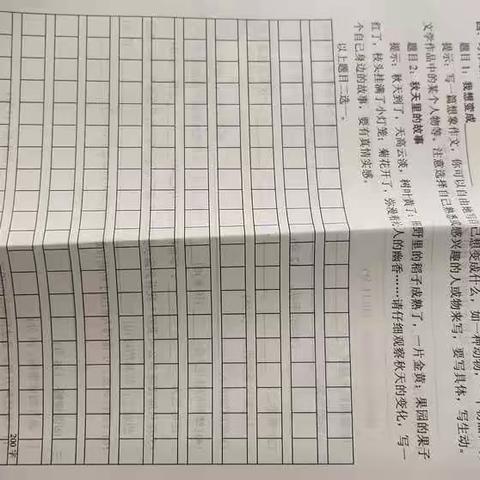 题目1：我想变成
提示：写一篇想象作文，你可以自由地写自己想变成什么，如一种动物，一个物品
文学作品中的某个人物等，注意选择自己熟悉或感兴趣的人或物来写，要写具体，写生动。
题目2：秋天里的故事
提示：秋天到了，天高云淡，树叶黄了；田野里的稻子成熟了，一片金黄；果园的果子
红了，枝头挂满了小灯笼；菊花开了，弥漫着人的幽香……请仔细观察秋天的变化，写一
个自己身边的故事，要有真情实感。
以上题目二选一。
200字